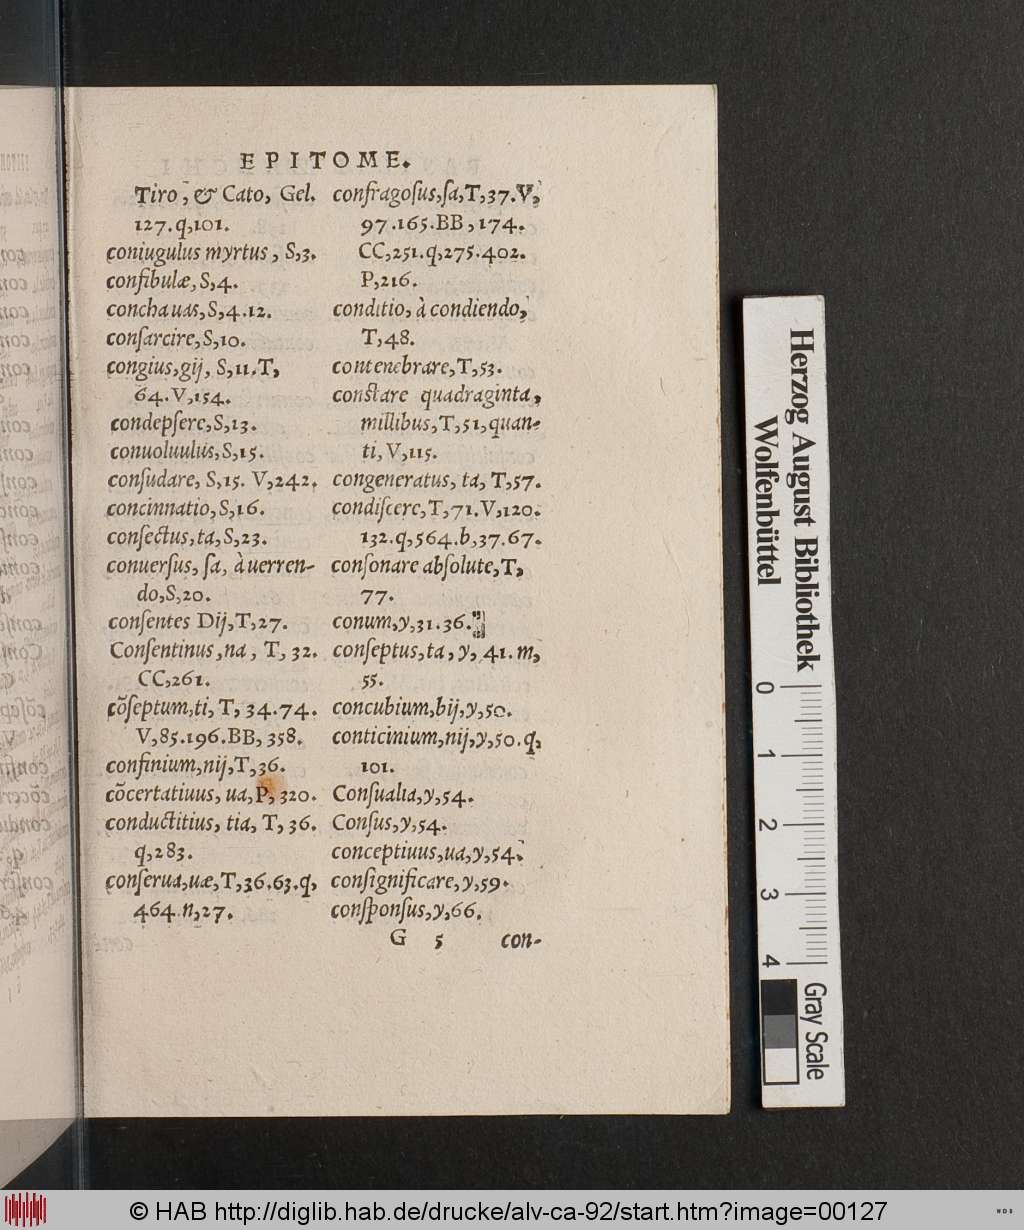 EPITOME.
Tiro, & Cato, Gel.
127.q,101.
coniugulus myrtus, S,3.
confibulæ, S,4.
conchauas, S,4.12.
conſarcire, S,10.
congius, gij, S,11.T,
64.V,154.
condepſere, S,13.
conuoluulus, S,15.
conſudare, S,15. V,242.
concinnatio, S,16.
conſectus, ta, S,23.
conuerſus, ſa, à uerren-
do, S,20.
conſentes Dij, T,27.
Conſentinus, na, T, 32.
CC,261.
cõſeptum, ti, T, 34.74.
V,85.196.BB, 358.
confinium, nij, T,36.
cõcertatiuus, ua, P, 320.
conductitius, tia, T, 36.
q,283.
conſerua, uæ, T,36.63.q,
464.n,27.
confragoſus, ſa, T,37.V,
97.165.BB,174.
CC,251.q,275.402.
P,216.
conditio, à condiendo,
T,48.
contenebrare, T,53.
conſtare quadraginta,
millibus, T,51, quan-
ti, V,115.
congeneratus, ta, T,57.
condiſcere, T,71.V,120.
132.q,564.b,37.67.
conſonare abſolute, T,
77.
conum, y,31.36.
conſeptus, ta, y, 41.m,
55.
concubium, bij, y,50.
conticinium, nij, y,50.q,
101.
Conſualia, y,54.
Conſus, y,54.
conceptiuus, ua, y,54.
conſignificare, y,59.
conſponſus, y,66.
G 5 con-
Herzog August Bibliothek
Wolfenbüttel
0 1 2 3 4
Gray Scale
© HAB http://diglib.hab.de/drucke/alv-ca-92/start.htm?image=00127